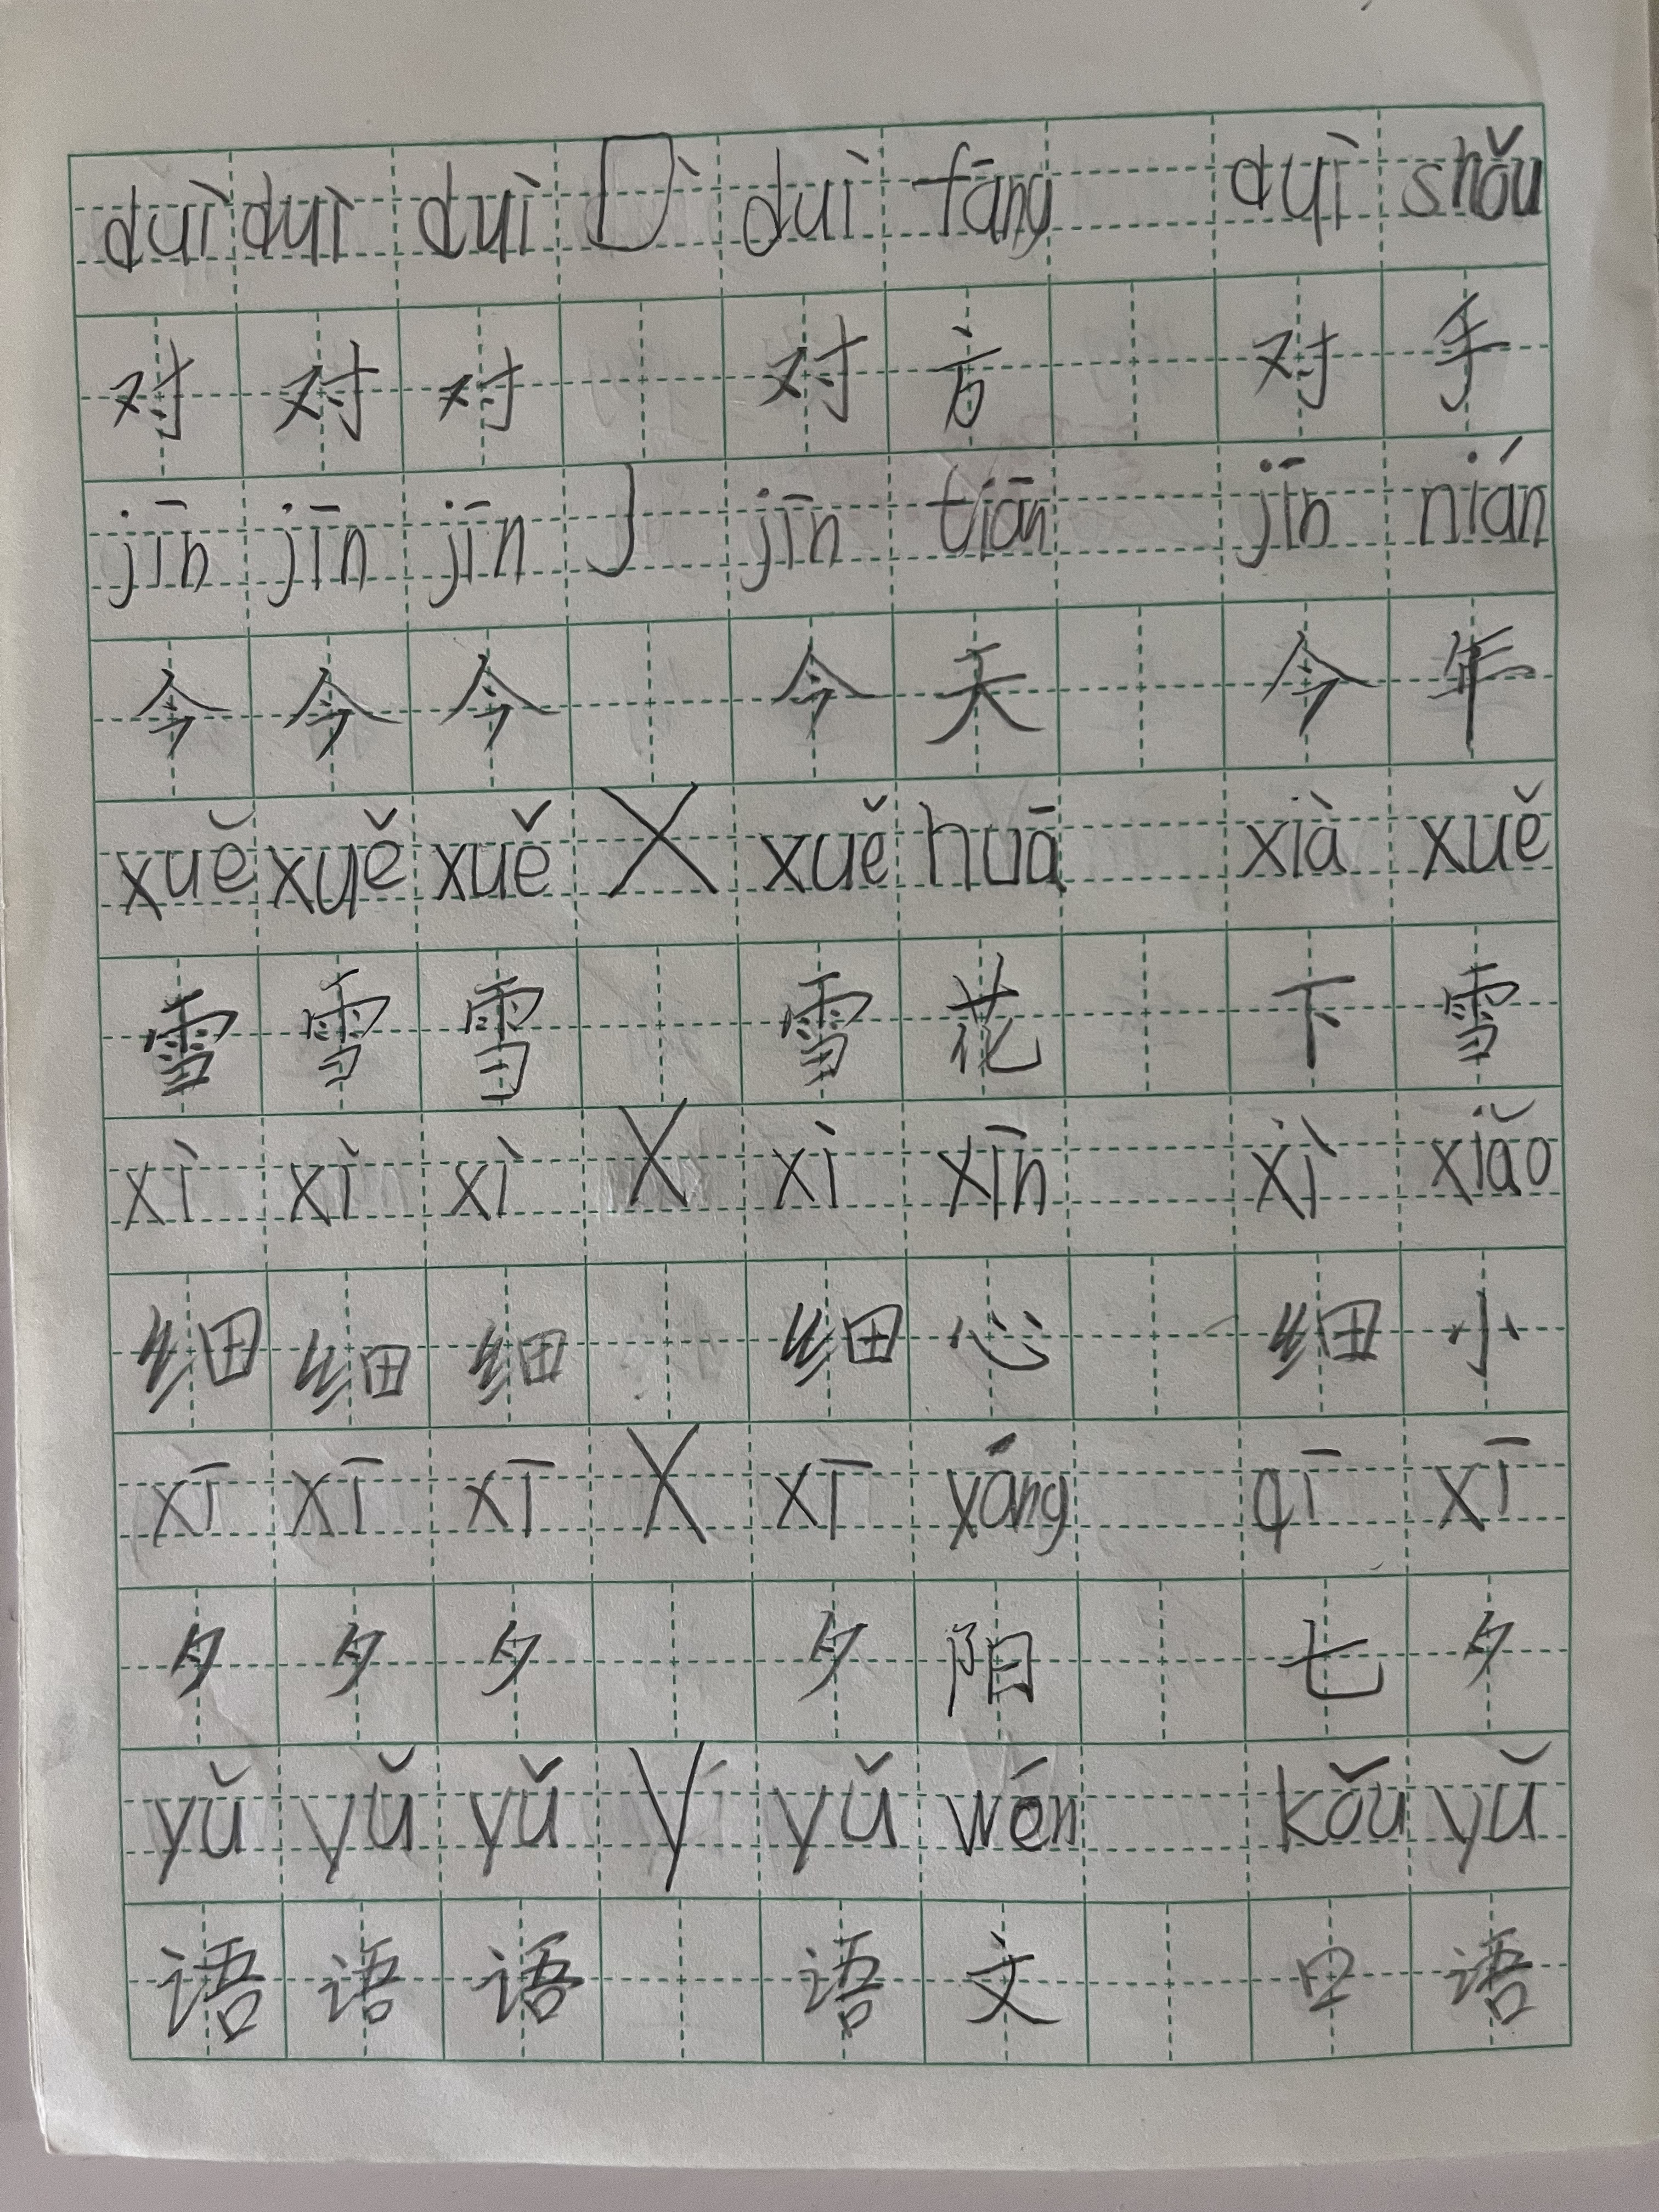 duì duì duì D duì fāng duì shǒu
对 对 对 对 方 对 手
jīn jīn jīn J jīn tiān jīn nián
今 今 今 今 天 今 年
xuě xuě xuě X xuě huā xià xuě
雪 雪 雪 雪 花 下 雪
xì xì xì X xì xīn xì xiǎo
细 细 细 细 心 细 小
xī xī xī X xī yáng qī xī
夕 夕 夕 夕 阳 七 夕
yǔ yǔ yǔ Y yǔ wén kǒu yǔ
语 语 语 语 文 口 语